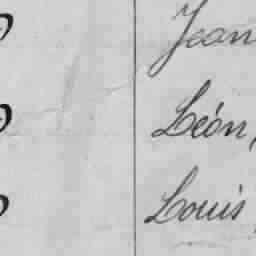 Jean
Léon,
Louis,